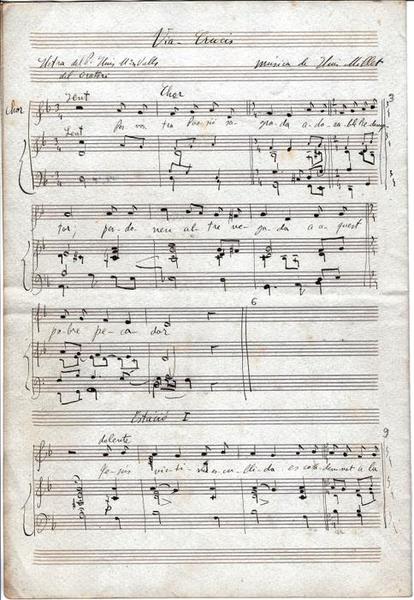 Via-Crucis
Lletra del P. Lluís Mª Valls
del Oratori
música de Lluis Millet
Lent Chor
Chor
Per vos tra Pas-sió sa-gra-da a-do-ra-ble Redemp-
Lent
tor, per-do-neu al-tre ve-ga-da a a-quest
6
po-bre pe-ca-dor
Estació I
9
dolente
Je-sús
es condemnat a la